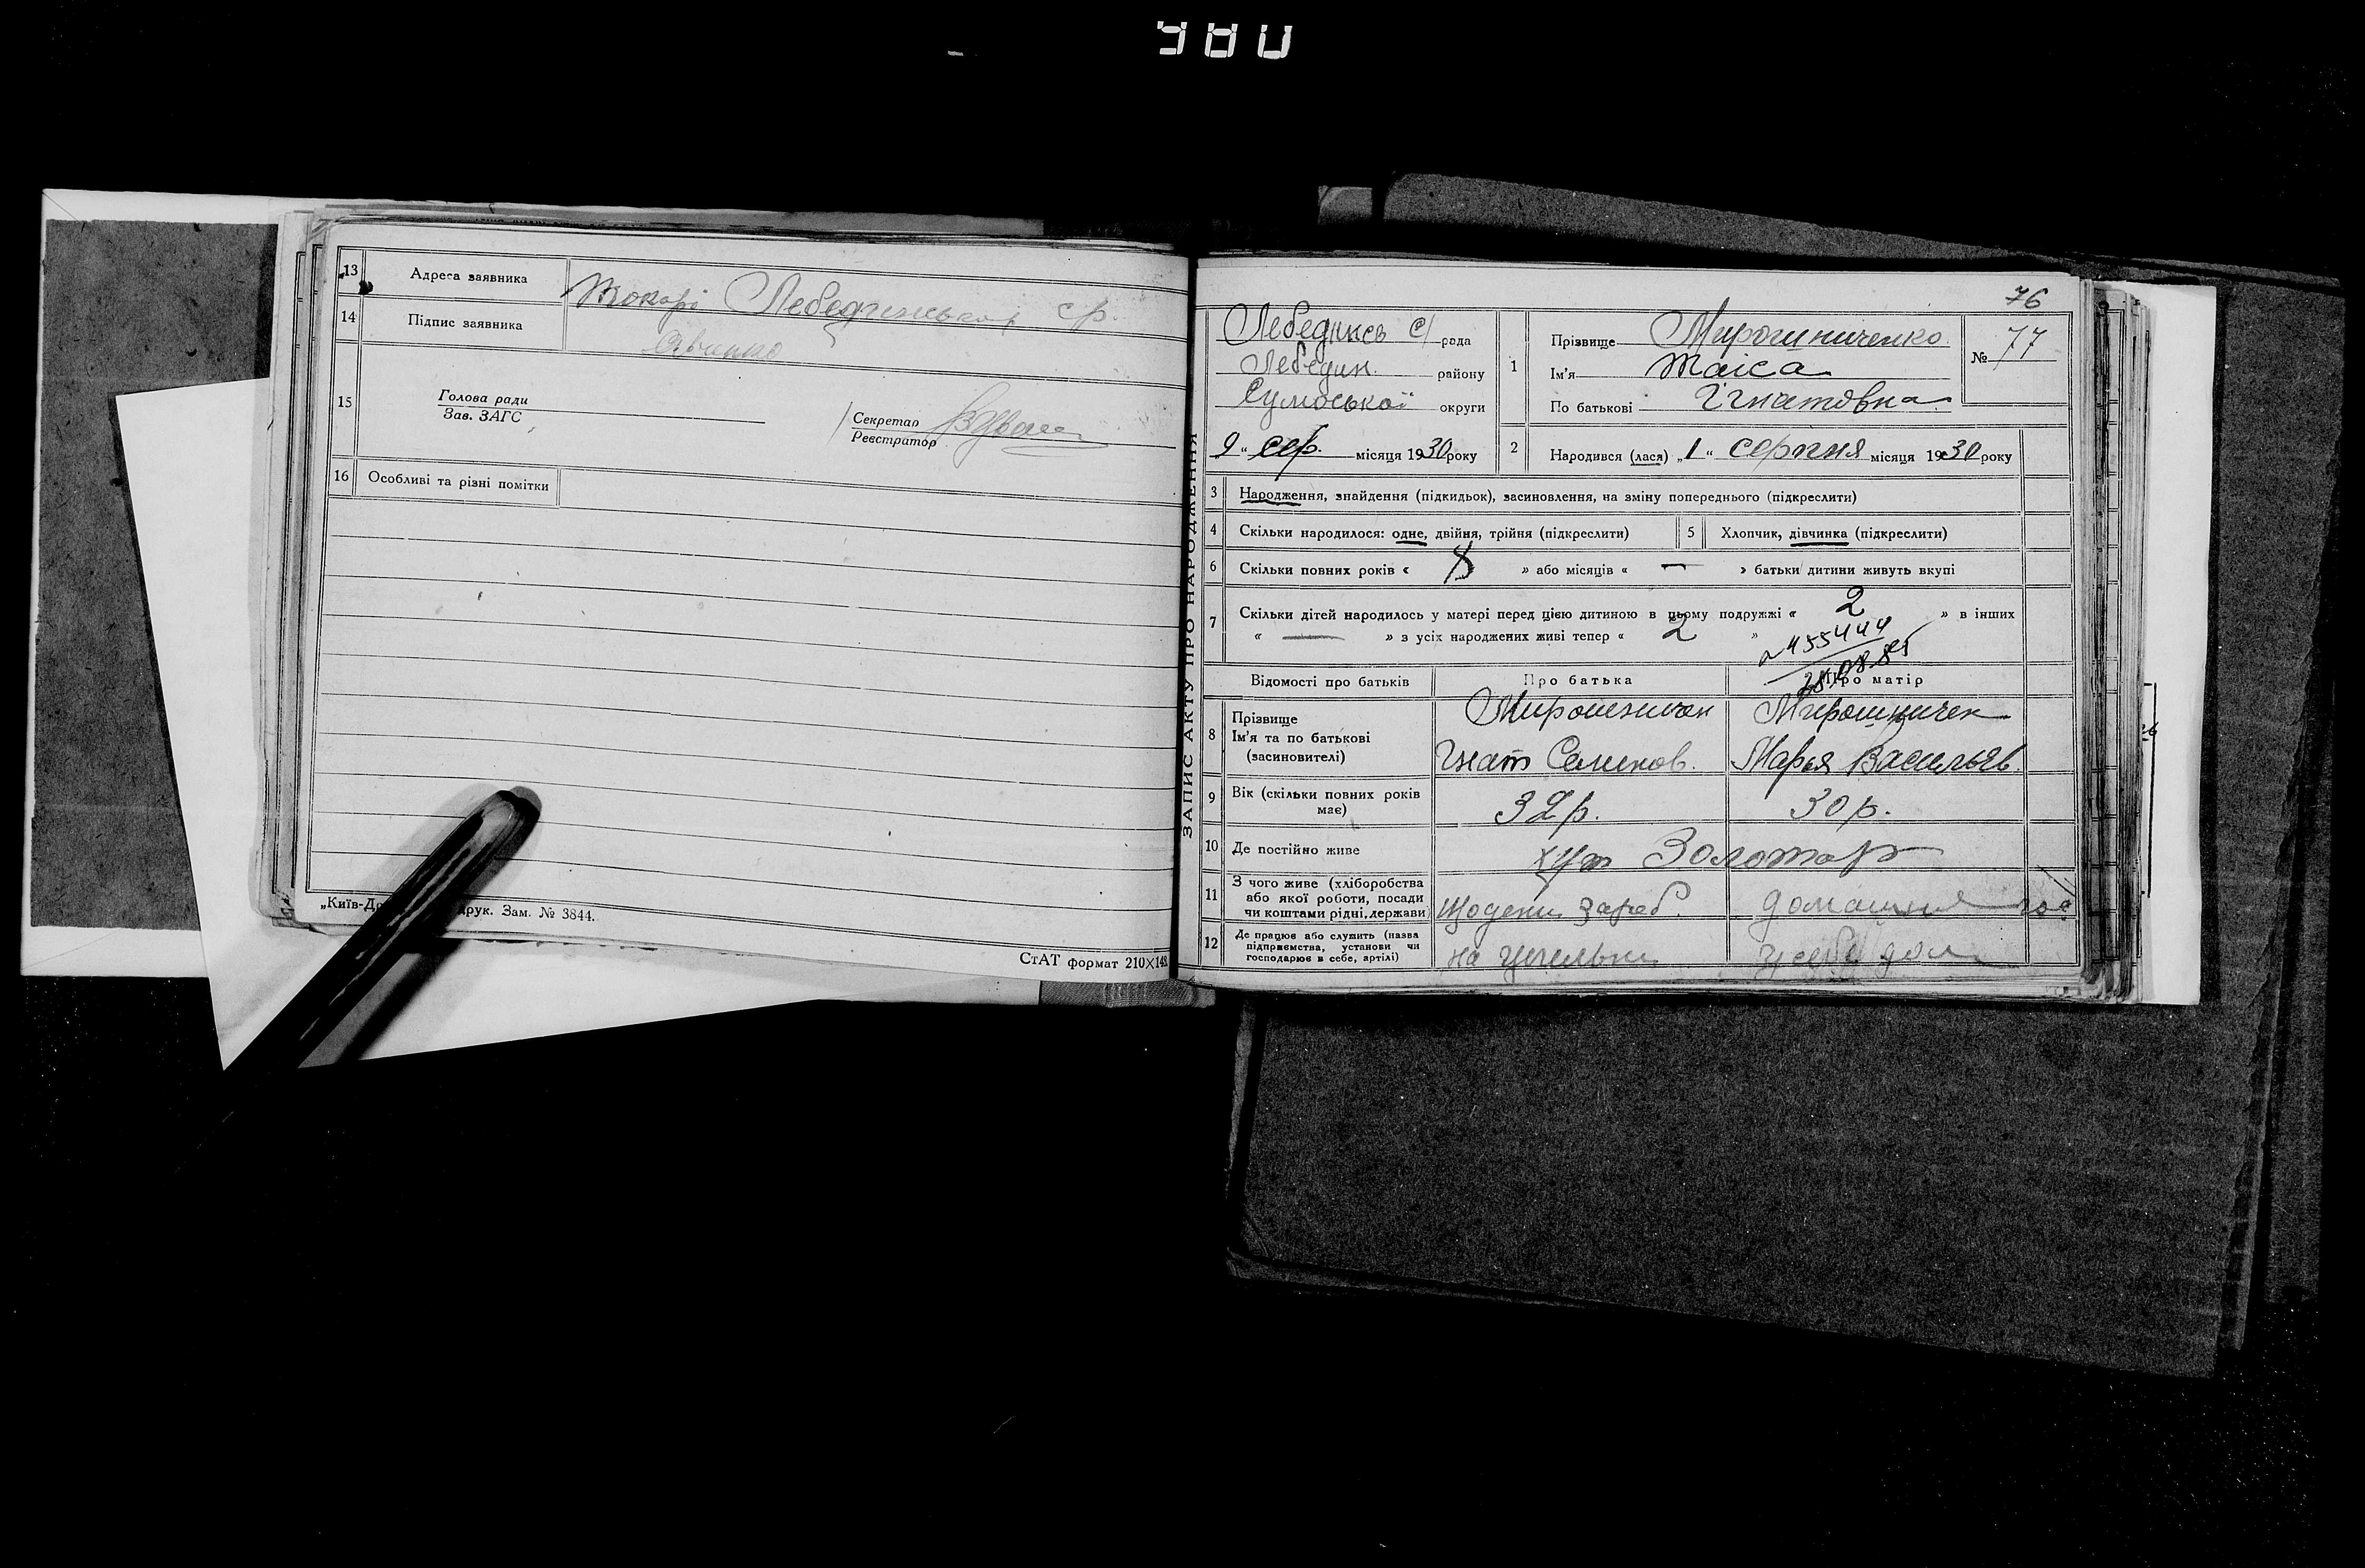 980
13 Адреса заявника Токарі Лебединської с р.
14 Підпис заявника
15 Голова ради
Зав. ЗАГС
Секретар
Реєстратор
16 Особливі та різні помітки
друк. Зам. № 3844.
СтАТ формат 210×148
ЗАПИС АКТУ ПРО НАРОДЖЕННЯ
76
Лебединсь с/ рада
Лебедин. району
Сумської округи
9 " сер. місяця 1930 року
1 Прізвище Мирошниченко
Ім'я Таіса
По батькові Ігнатовна
№ 77
2 Народився (лася) „1" серпня місяця 1930 року
3 Народження, знайдення (підкидьок), засиновлення, на зміну попереднього (підкреслити)
4 Скільки народилося: одне, двійня, трійня (підкреслити) 5 Хлопчик, дівчинка (підкреслити)
6 Скільки повних років « 8 » або місяців « — » батьки дитини живуть вкупі
7 Скільки дітей народилось у матері перед цією дитиною в цьому подружжі « 2 » в інших
« — » з усіх народжених живі тепер « 2 "
Відомості про батьків Про батька Про матір
8 Прізвище
Ім'я та по батькові
(засиновителі)
Мирошничен
Гнат Семенов.
Мирошничен
Марья Васильев.
9 Вік (скільки повних років має) 32 р. 30 р.
10 Де постійно живе хут Золотар
11 З чого живе (хліборобства
або якої роботи, посади
чи коштами рідні, держави)
Щоденн зароб.
домашня гос
12 Де працює або служить (назва
підприємства, установи чи
господарює в себе, артілі)
на цегельни
у себе дома